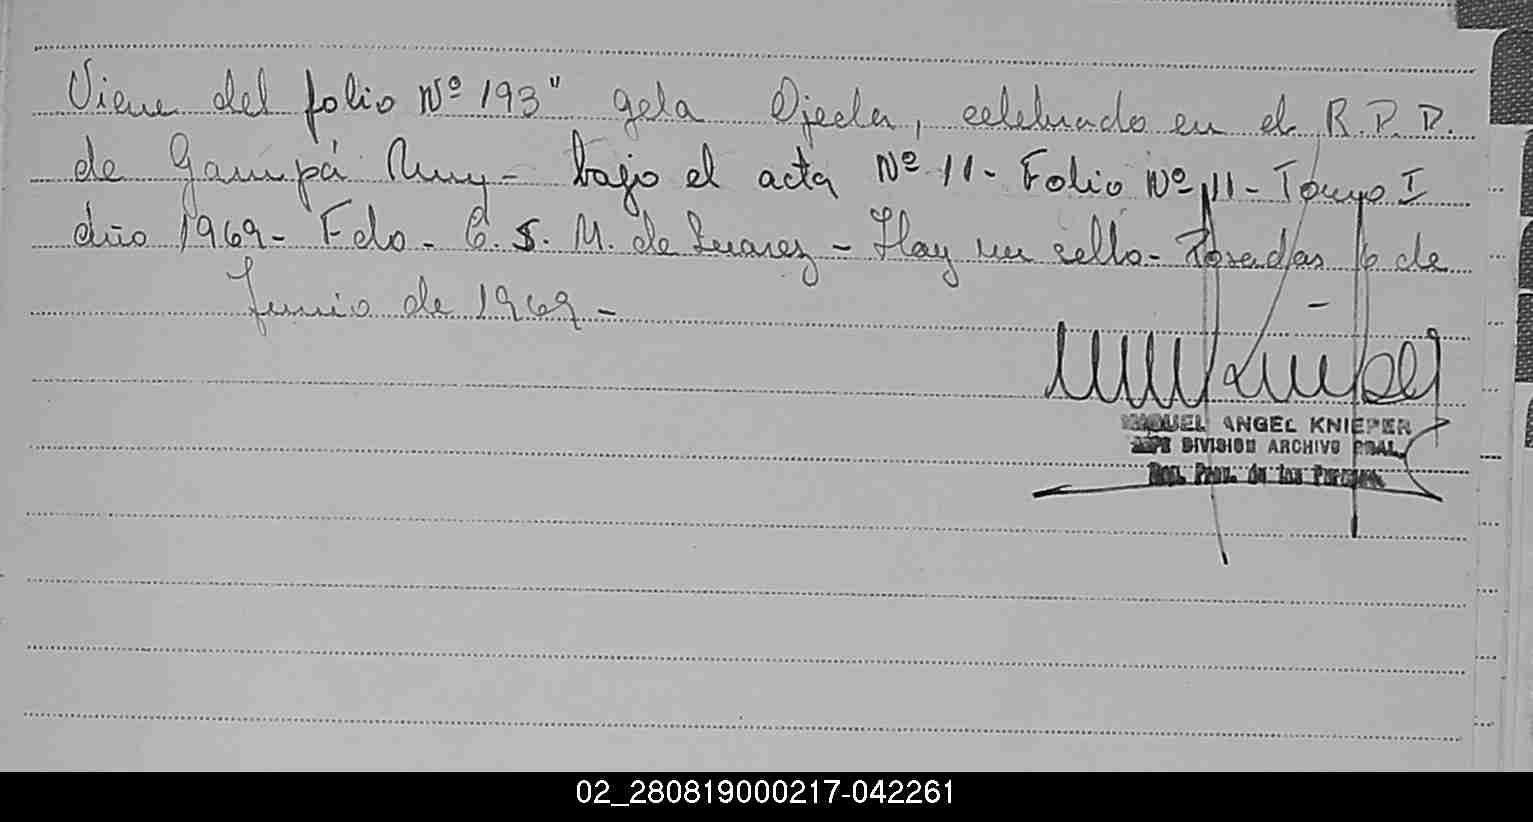 Viene del folio Nº 193" gela Ojeda, celebrado en el R.P.P.
de Garupá Muy - bajo el acta Nº 11 - Folio Nº 11 - Tomo I
año 1969 - Fdo. C. S. M. de Suarez - Hay un sello - Posadas 6 de
Junio de 1969 -
MIGUEL ANGEL KNIEPER
JEFE DIVISION ARCHIVO GRAL.
Reg. Prov. de las Personas
02_280819000217-042261